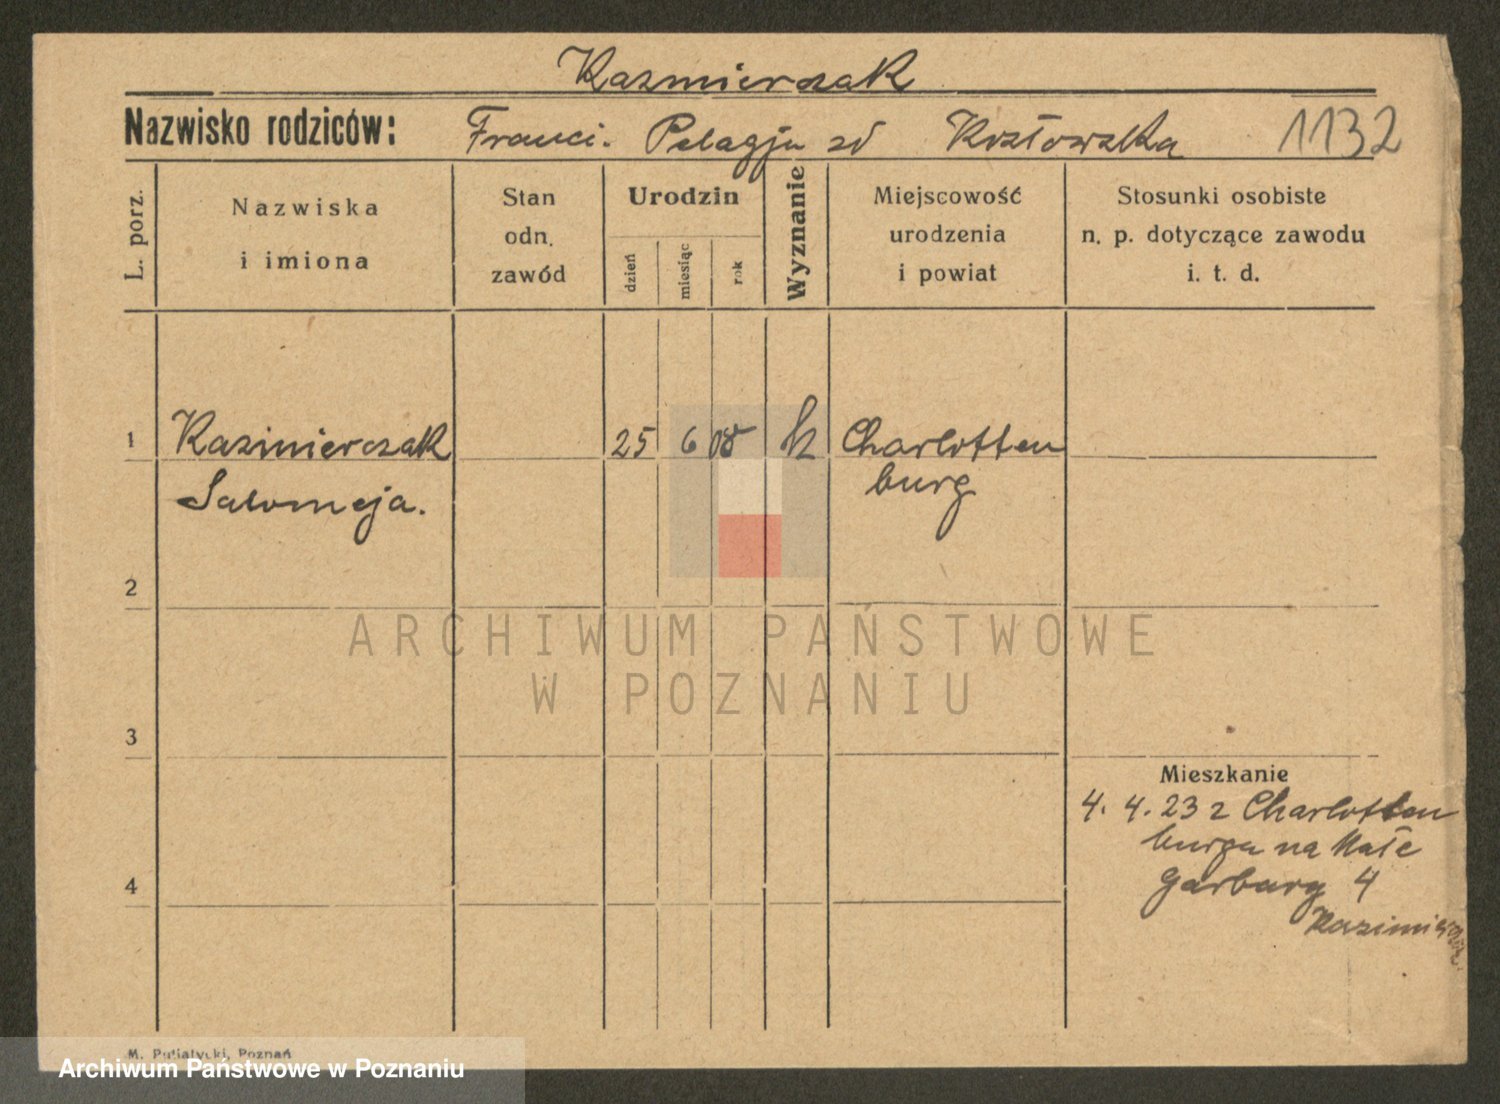 Kazmierczak
Nazwisko rodziców: Franci. Pelagja zd Kozłowska 1132
L. porz.
Nazwiska
i imiona
Stan
odn.
zawód
Urodzin
dzień
miesiąc
rok
Wyznanie
Miejscowość
urodzenia
i powiat
Stosunki osobiste
n. p. dotyczące zawodu
i. t. d.
1 Kazimierczak 25 6 08 k Charlotten
Salomeja. burg
2
ARCHIWUM PAŃSTWOWE
W POZNANIU
3
Mieszkanie
4. 4. 23 z Charlotten
burga na Małe
4 Garbary 4
M. Putiatycki, Poznań
Archiwum Państwowe w Poznaniu